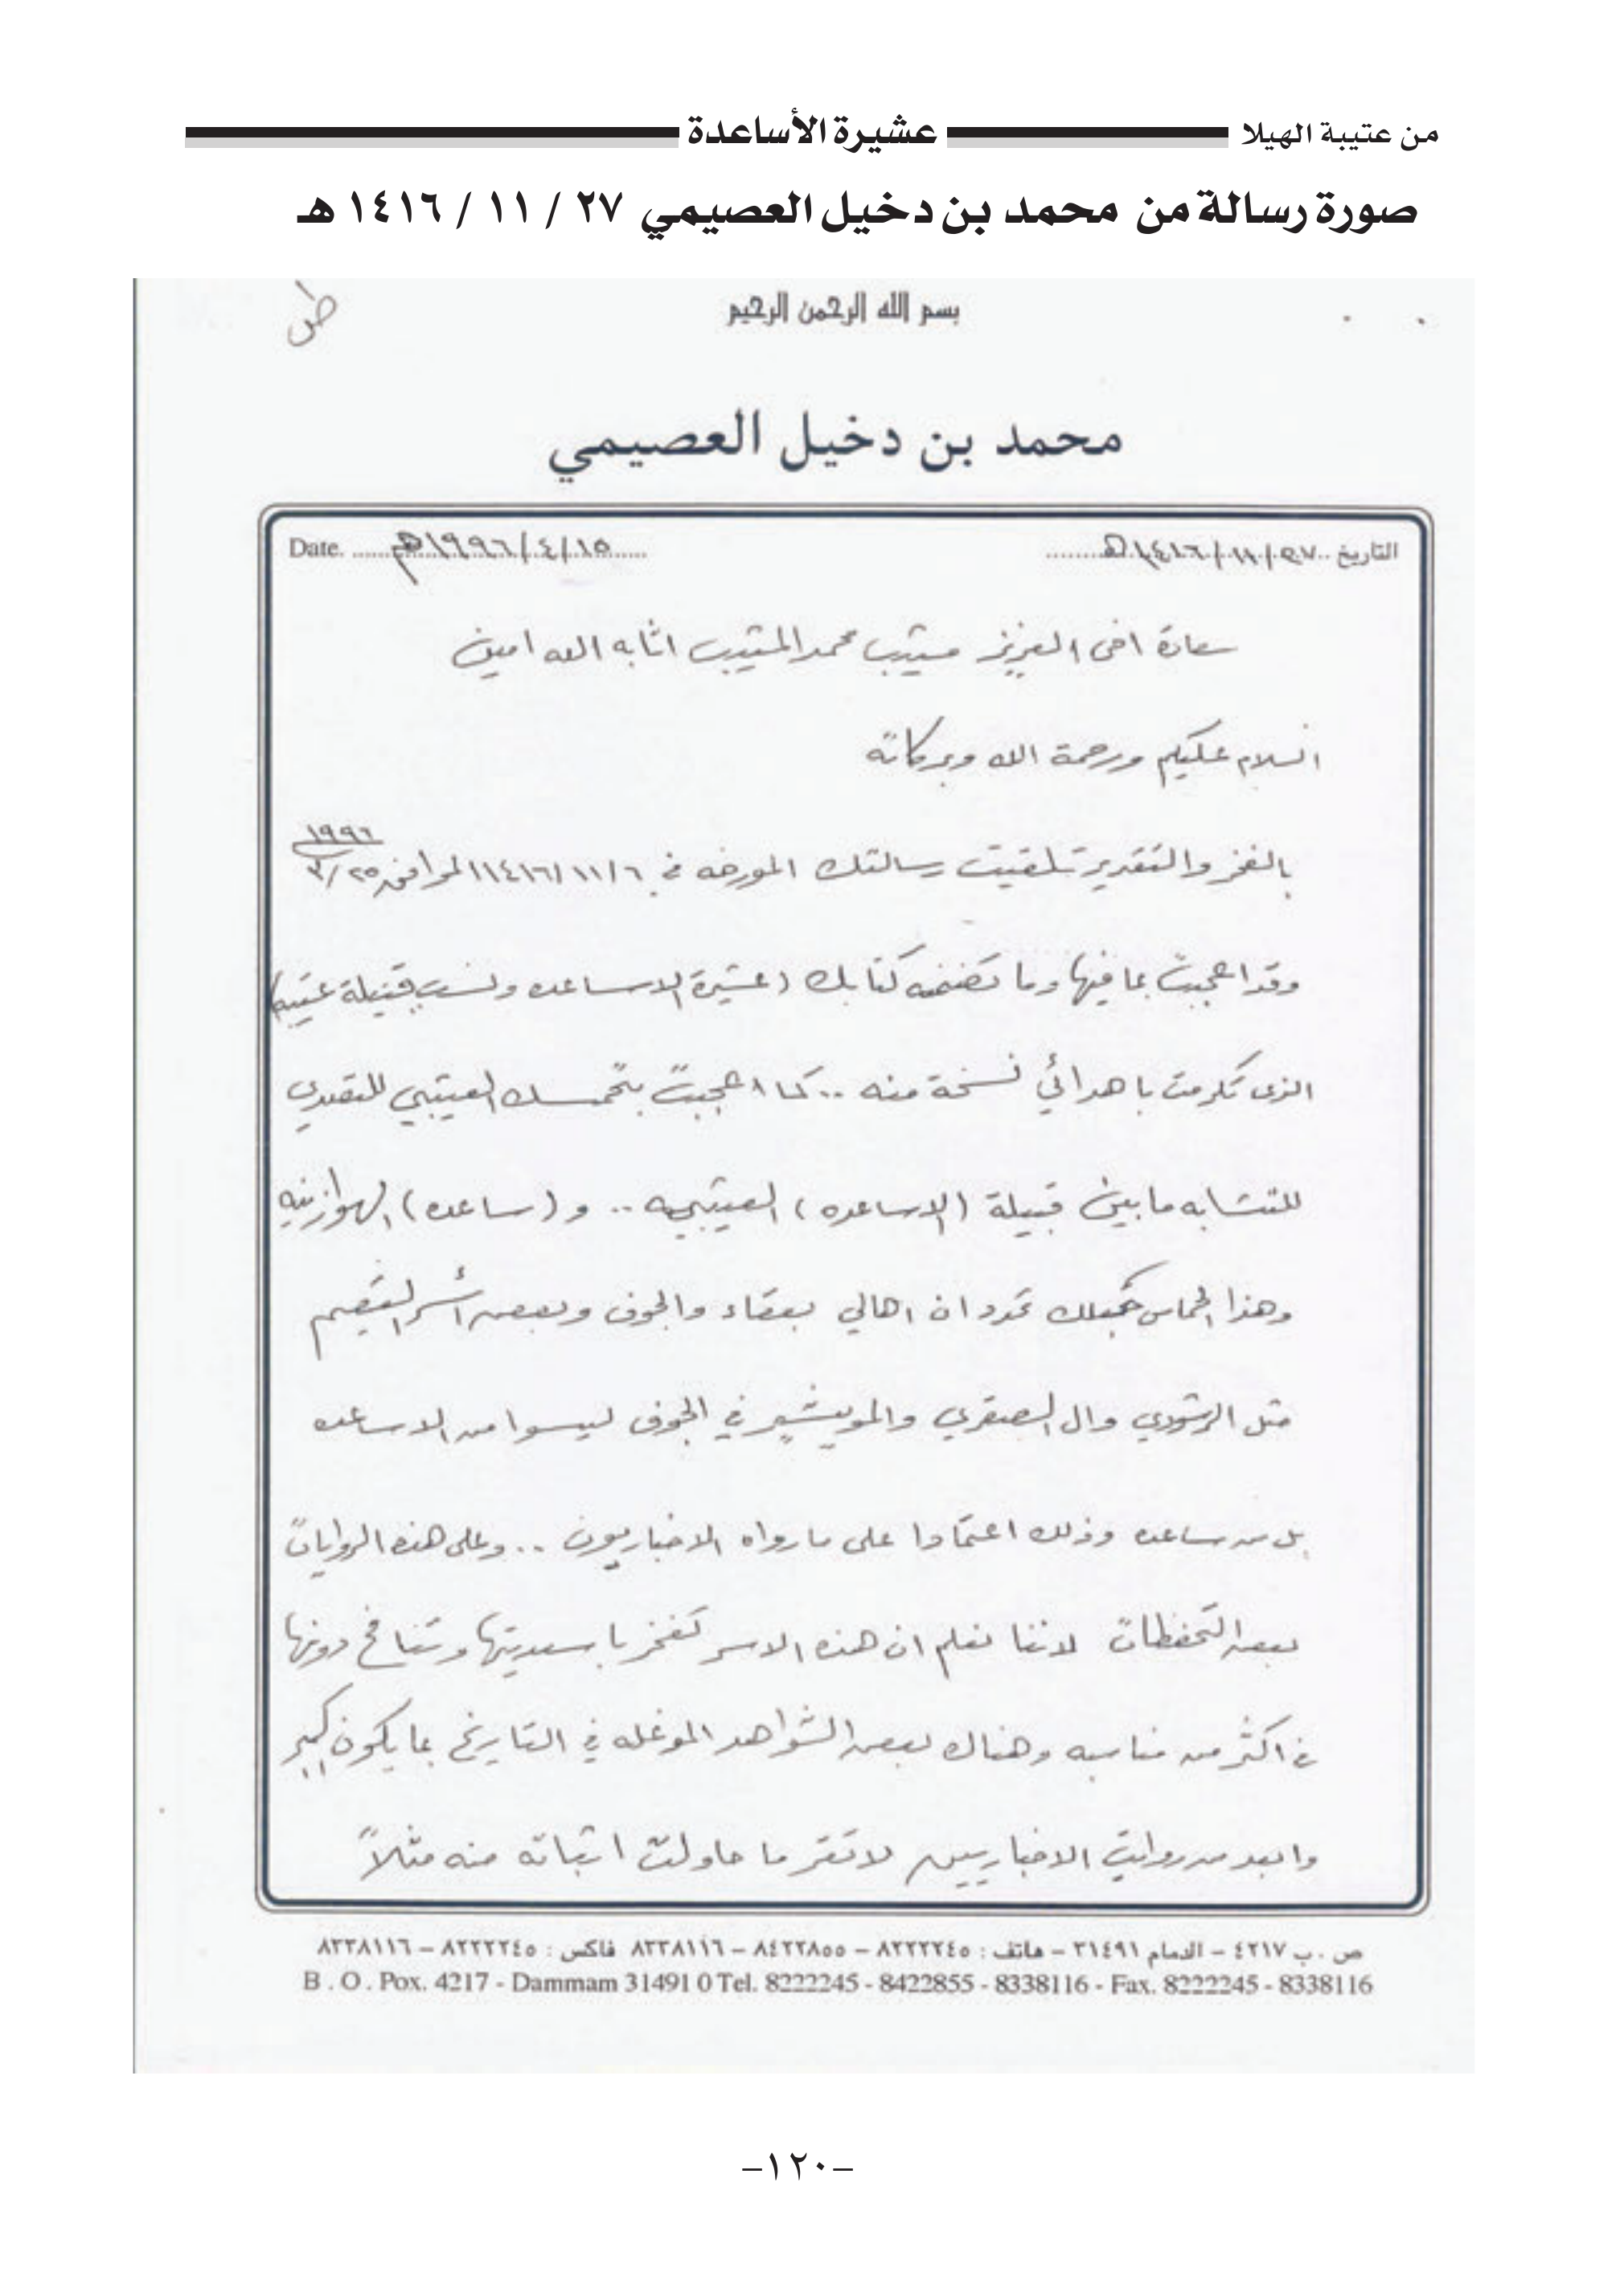 من عتيبة الهيلا عشيرة الأساعدة
صورة رسالة من محمد بن دخيل العصيمي ٢٧ / ١١ / ١٤١٦ هـ
بسم الله الرحمن الرحيم
محمد بن دخيل العصيمي
التاريخ ٢٧/١١/١٤١٦هـ Date. ١٥/٤/١٩٩٦م
سعادة اخي العزيز محمد اثابه الله امين
السلام عليكم ورحمة الله وبركاته
بالفخر والتقدير تلقيت رسالتك المورخه في ١٤١٦/١١/٦ الموافق ٣/٢٥ ١٩٩٦
وقد اعجبت بما فيها وما تضمنه كتابك (عشيرة الاساعده ونسب قبيلة عتيبه)
الذى تكرمت باهدائي نسخة منه .. كما اعجبت بتحمسك العتيبي للتصدي
للتشابه ما بين قبيلة (الاساعده) العتيبيه .. و (ساعده) الهوازنيه
وهذا الحماس ان اهالي بقعاء والجوف وبعض أسر القصيم
مثل الرشودي وال الصقري والمويشير في الجوف ليسوا من الاساعده
بل من ساعده وذلك اعتمادا على ما رواه الاخباريون .. وعلى هذه الروايات
بعض التحفظات لاننا نعلم ان هذه الاسر تفخر باسعديتها وتنافح دونها
في اكثر من مناسبه وهناك بعض الشواهد الموغله في التاريخ بما يكون اكبر
وابعد من روايات الاخباريين لا تقر ما حاولت اثباته منه مثلاً
ص . ب ٤٢١٧ – الدمام ٣١٤٩١ – هاتف : ٨٢٢٢٢٤٥ – ٨٤٢٢٨٥٥ – ٨٣٣٨١١٦ فاكس : ٨٢٢٢٢٤٥ – ٨٣٣٨١١٦
B . O . Pox. 4217 - Dammam 31491 0 Tel. 8222245 - 8422855 - 8338116 - Fax. 8222245 - 8338116
–١٢٠–